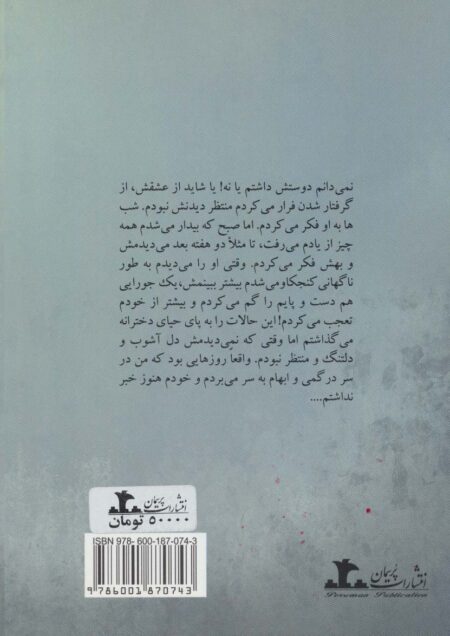 نمی‌دانم دوستش داشتم یا نه! یا شاید از عشقش، از
گرفتار شدن فرار می‌کردم منتظر دیدنش نبودم. شب
ها به او فکر می‌کردم. اما صبح که بیدار می‌شدم همه
چیز از یادم می‌رفت، تا مثلاً دو هفته بعد می‌دیدمش
و بهش فکر می‌کردم. وقتی او را می‌دیدم به طور
ناگهانی کنجکاو می‌شدم بیشتر ببینمش، یک جورایی
هم دست و پایم را گم می‌کردم و بیشتر از خودم
تعجب می‌کردم! این حالات را به پای حیای دخترانه
می‌گذاشتم اما وقتی که نمی‌دیدمش دل آشوب و
دلتنگ و منتظر نبودم. واقعا روزهایی بود که من در
سر درگمی و ابهام به سر می‌بردم و خودم هنوز خبر
نداشتم....
انتشارات پریمان
۵۰۰۰۰ تومان
ISBN 978- 600-187-074-3
9 786001 870743
انتشارات پریمان
Peryman Publication